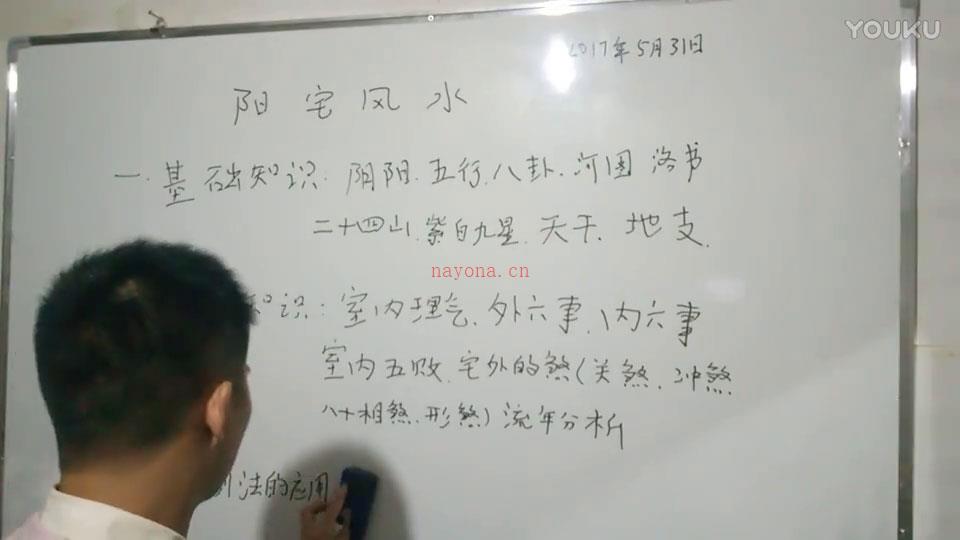 YOUKU
2017年5月31日
阳宅风水
一.基础知识:阴阳.五行.八卦.河图 洛书
二十四山.紫白九星.天干.地支.
nayona.cn
识:室内理气.外六事.内六事
室内五败.宅外的煞(关煞.冲煞.
八十相煞.形煞)流年分析
法的应用